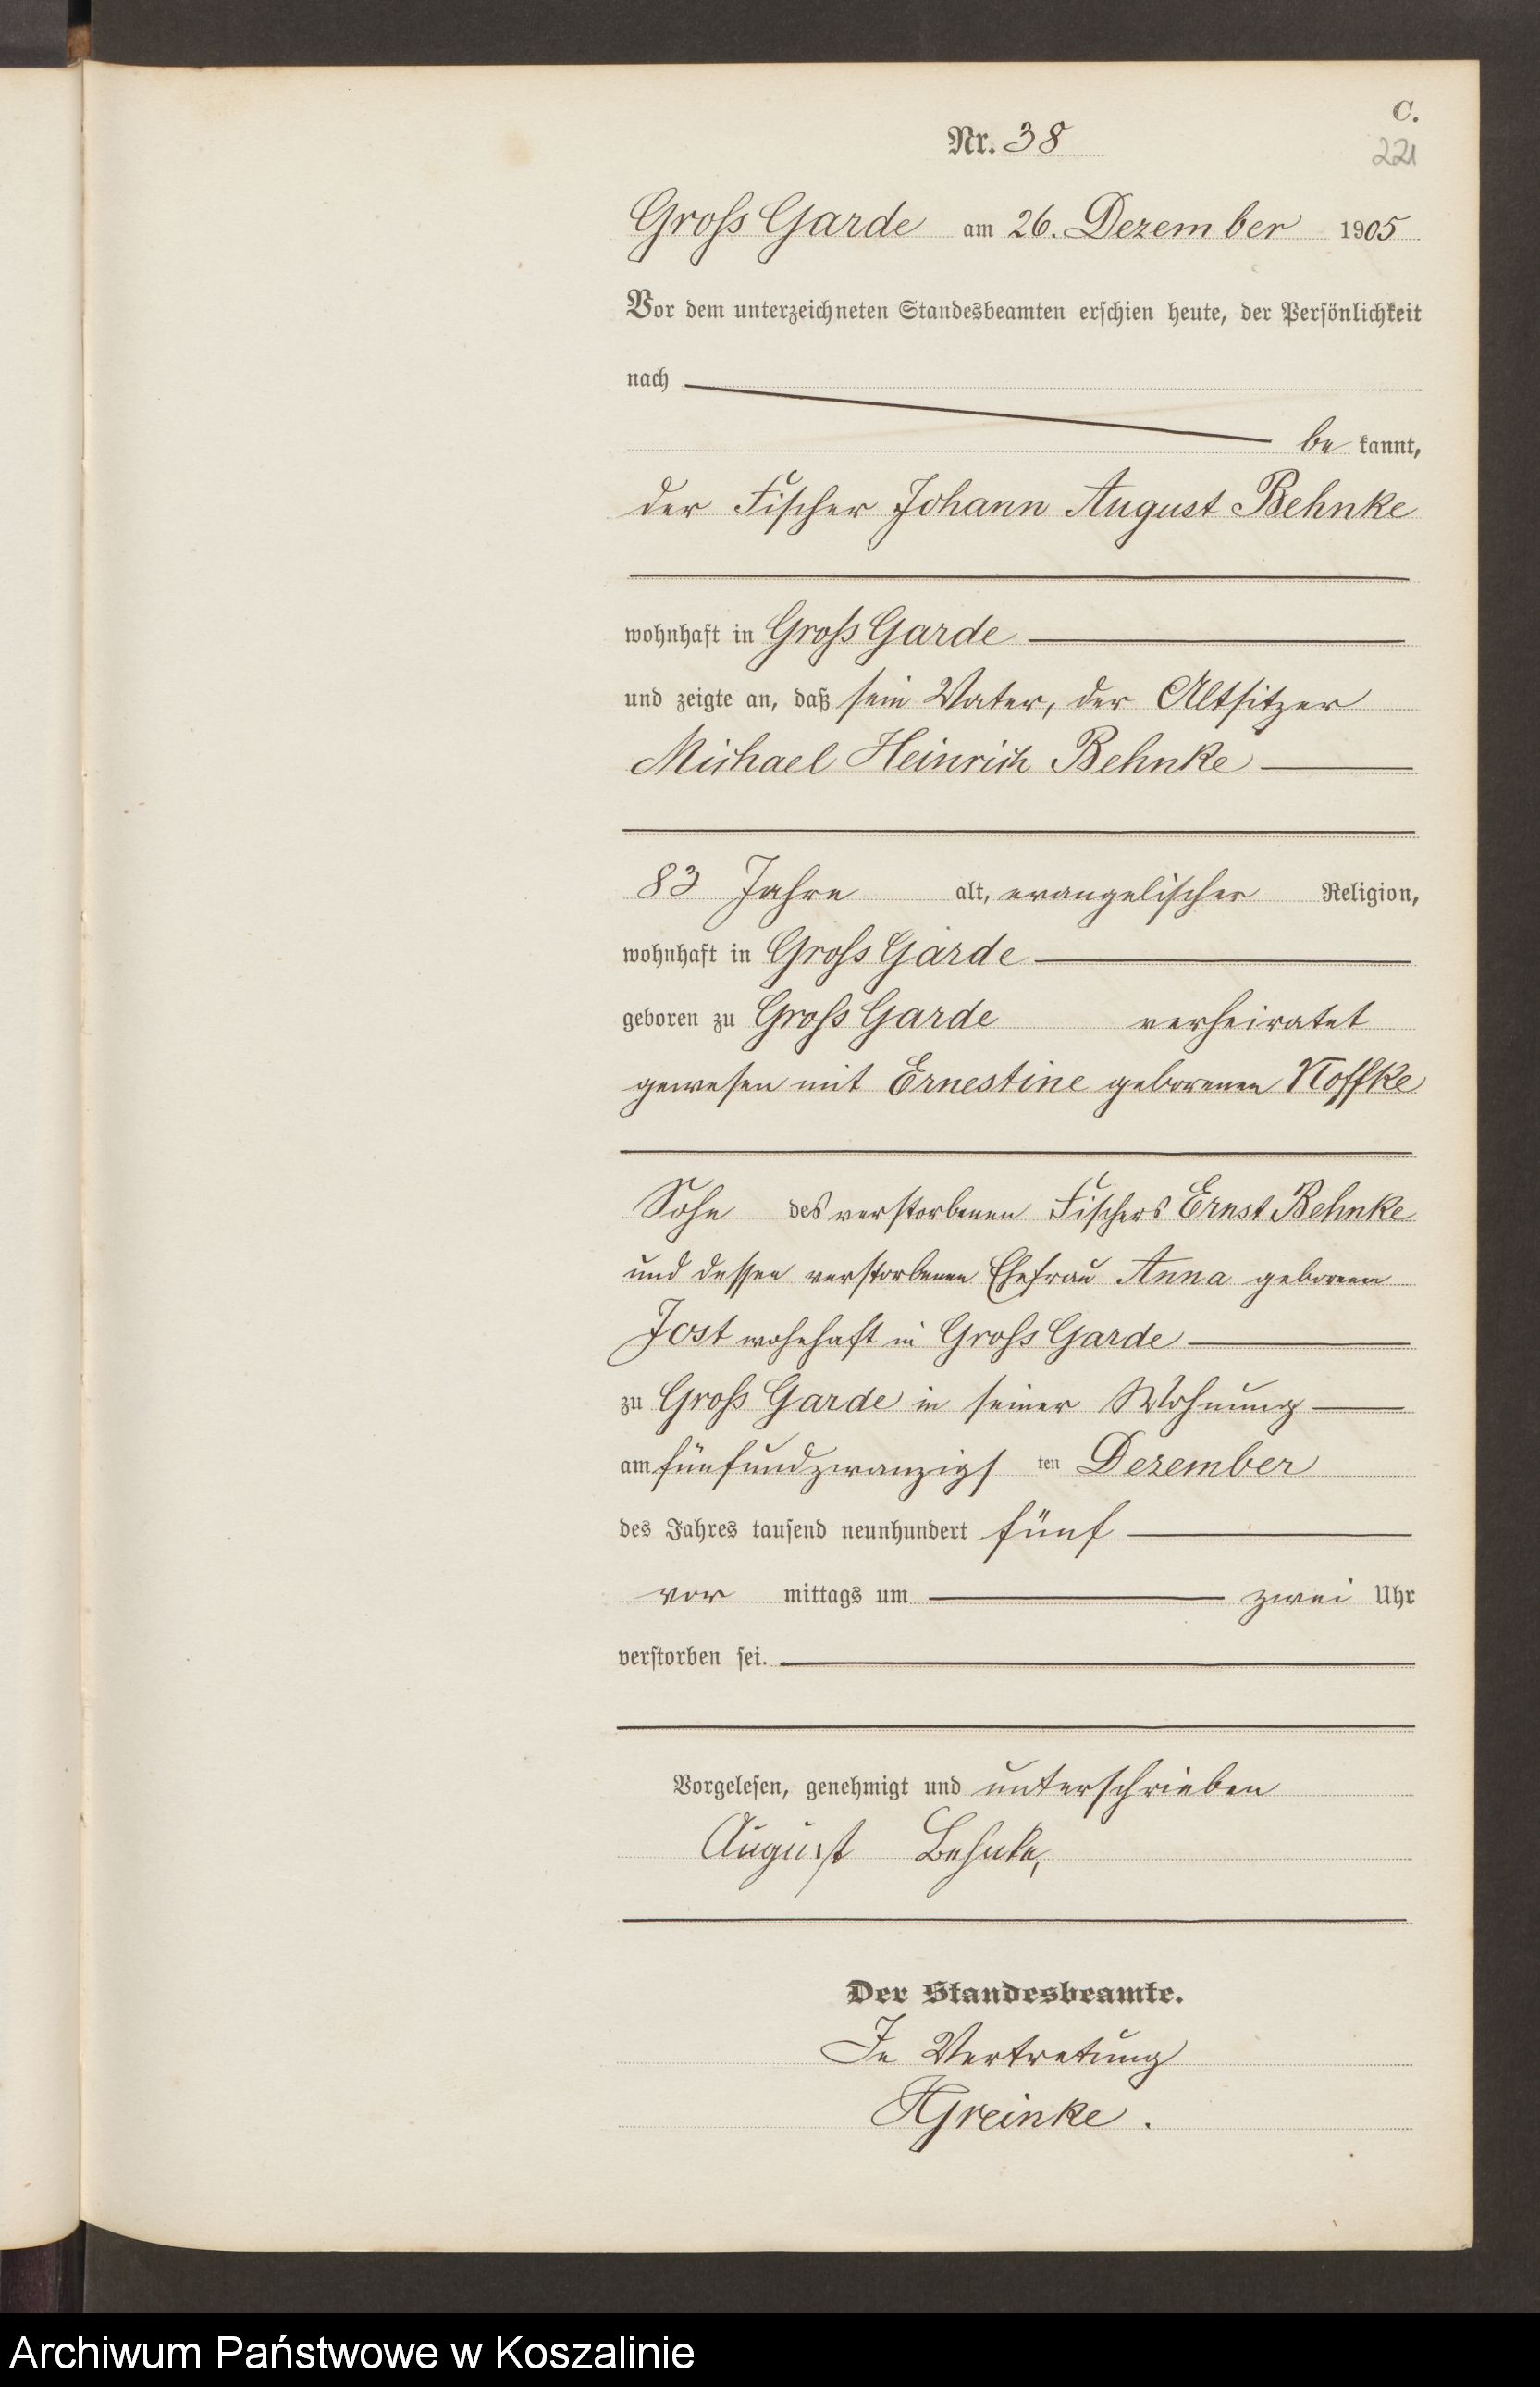 C.
Nr. 38
221
Gross Garde am 26. Dezember 1905
Vor dem unterzeichneten Standesbeamten erschien heute, der Persönlichkeit
nach
be kannt,
der Fischer Johann August Behnke
wohnhaft in Gross Garde
und zeigte an, daß sein Vater, der Altsitzer
Michael Heinrich Behnke
83 Jahre alt, evangelischer Religion,
wohnhaft in Gross Garde
geboren zu Gross Garde verheiratet
gewesen mit Ernestine geborenen Noffke
Sohn des verstorbenen Fischers Ernst Behnke
und dessen verstorbenen Ehefrau Anna geborenen
Jost wohnhaft in Gross Garde
zu Gross Garde in seiner Wohnung
am fünfundzwanzigs ten Dezember
des Jahres tausend neunhundert fünf
vor mittags um zwei Uhr
verstorben sei.
Vorgelesen, genehmigt und unterschrieben
August Behnke,
Der Standesbeamte.
In Vertretung
HGreinke.
Archiwum Państwowe w Koszalinie